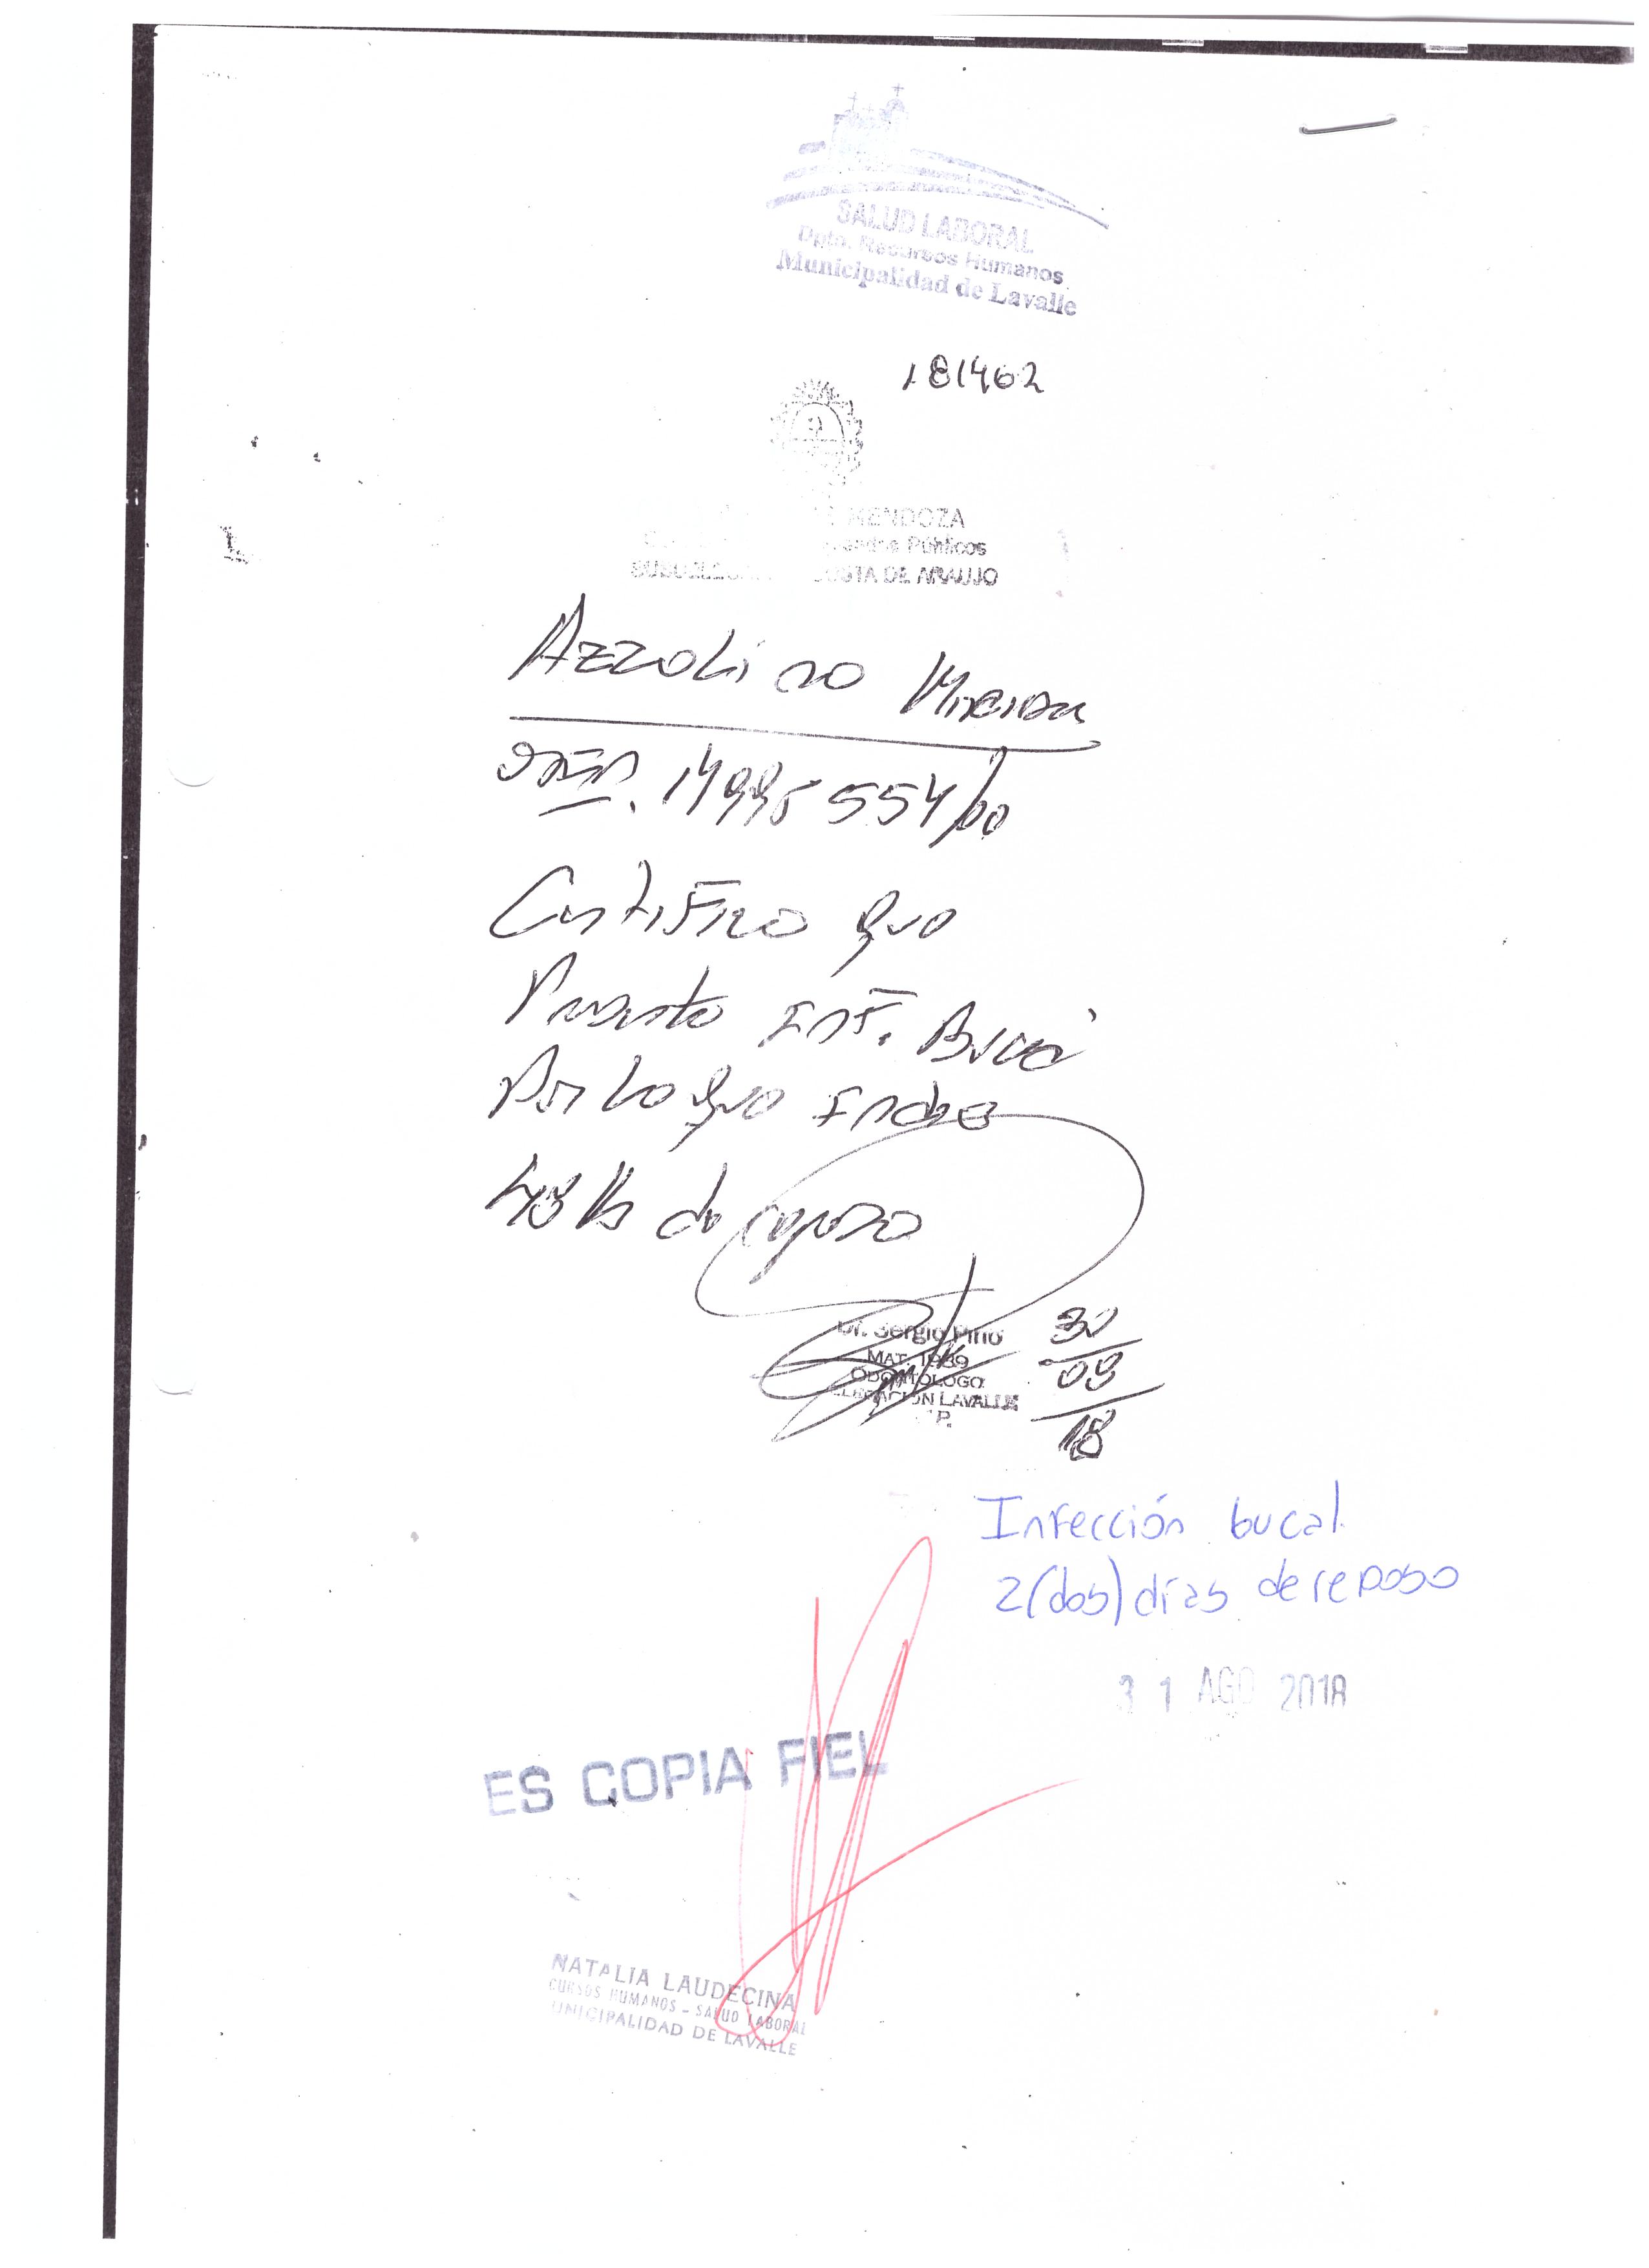 SALUD LABORAL
Dpto. Recursos Humanos
Municipalidad de Lavalle
181462
MENDOZA
Públicos
COSTA DE ARAUJO
Azzolino Miriam
OSEP. 14995554/00
Certifico que
Presenta Inf. Bucal
Por lo que Indico
48 Hs de reposo
Dr. Sergio Pino
MAT. 1989
ODONTOLOGO
LAVALLE
30
08
18
Infección bucal
2 (dos) días de reposo
31 AGO 2018
ES COPIA FIEL
NATALIA LAUDECINA
CURSOS HUMANOS - SALUD LABORAL
UNICIPALIDAD DE LAVALLE